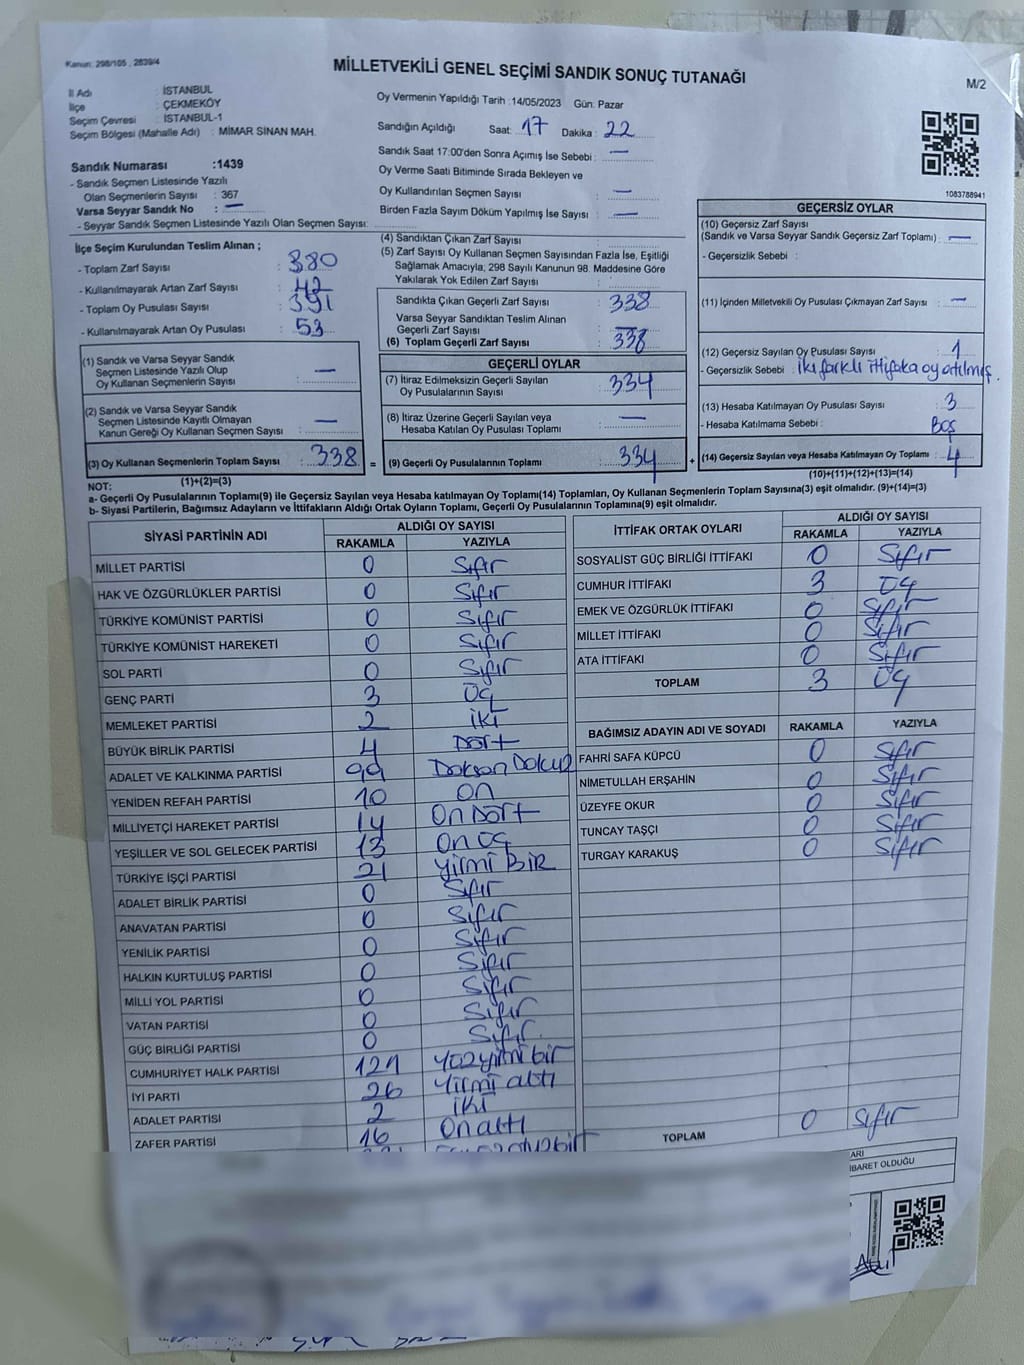 Kanun: 298/105 , 2839/4
MİLLETVEKİLİ GENEL SEÇİMİ SANDIK SONUÇ TUTANAĞI
M/2
İl Adı : İSTANBUL
İlçe : ÇEKMEKÖY
Seçim Çevresi : İSTANBUL-1
Seçim Bölgesi (Mahalle Adı) : MİMAR SİNAN MAH.
Oy Vermenin Yapıldığı Tarih :14/05/2023 Gün: Pazar
Sandığın Açıldığı Saat: 17 Dakika : 22
Sandık Saat 17:00'den Sonra Açımış İse Sebebi : —
Oy Verme Saati Bitiminde Sırada Bekleyen ve
Oy Kullandırılan Seçmen Sayısı : —
Birden Fazla Sayım Döküm Yapılmış İse Sayısı : —
1083788941
Sandık Numarası :1439
- Sandık Seçmen Listesinde Yazılı
Olan Seçmenlerin Sayısı : 367
Varsa Seyyar Sandık No : —
- Seyyar Sandık Seçmen Listesinde Yazılı Olan Seçmen Sayısı:
İlçe Seçim Kurulundan Teslim Alınan ;
- Toplam Zarf Sayısı : 380
- Kullanılmayarak Artan Zarf Sayısı : 42
- Toplam Oy Pusulası Sayısı : 391
- Kullanılmayarak Artan Oy Pusulası : 53
(1) Sandık ve Varsa Seyyar Sandık
Seçmen Listesinde Yazılı Olup
Oy Kullanan Seçmenlerin Sayısı : —
(2) Sandık ve Varsa Seyyar Sandık
Seçmen Listesinde Kayıtlı Olmayan
Kanun Gereği Oy Kullanan Seçmen Sayısı : —
(3) Oy Kullanan Seçmenlerin Toplam Sayısı : 338
(1)+(2)=(3)
(4) Sandıktan Çıkan Zarf Sayısı :
(5) Zarf Sayısı Oy Kullanan Seçmen Sayısından Fazla İse, Eşitliği
Sağlamak Amacıyla, 298 Sayılı Kanunun 98. Maddesine Göre
Yakılarak Yok Edilen Zarf Sayısı :
Sandıkta Çıkan Geçerli Zarf Sayısı : 338
Varsa Seyyar Sandıktan Teslim Alınan
Geçerli Zarf Sayısı : —
(6) Toplam Geçerli Zarf Sayısı : 338
GEÇERLİ OYLAR
(7) İtiraz Edilmeksizin Geçerli Sayılan
Oy Pusulalarının Sayısı : 334
(8) İtiraz Üzerine Geçerli Sayılan veya
Hesaba Katılan Oy Pusulası Toplamı : —
= (9) Geçerli Oy Pusulalarının Toplamı : 334 +
GEÇERSİZ OYLAR
(10) Geçersiz Zarf Sayısı
(Sandık ve Varsa Seyyar Sandık Geçersiz Zarf Toplamı) : —
- Geçersizlik Sebebi :
(11) İçinden Milletvekili Oy Pusulası Çıkmayan Zarf Sayısı : —
(12) Geçersiz Sayılan Oy Pusulası Sayısı : 1
- Geçersizlik Sebebi : İki farklı ittifaka oy atılmış.
(13) Hesaba Katılmayan Oy Pusulası Sayısı : 3
- Hesaba Katılmama Sebebi : Boş
(14) Geçersiz Sayılan veya Hesaba Katılmayan Oy Toplamı : 4
(10)+(11)+(12)+(13)=(14)
NOT:
a- Geçerli Oy Pusulalarının Toplamı(9) ile Geçersiz Sayılan veya Hesaba katılmayan Oy Toplamı(14) Toplamları, Oy Kullanan Seçmenlerin Toplam Sayısına(3) eşit olmalıdır. (9)+(14)=(3)
b- Siyasi Partilerin, Bağımsız Adayların ve İttifakların Aldığı Ortak Oyların Toplamı, Geçerli Oy Pusulalarının Toplamına(9) eşit olmalıdır.
SİYASİ PARTİNİN ADI ALDIĞI OY SAYISI
RAKAMLA YAZIYLA
MİLLET PARTİSİ 0 Sıfır
HAK VE ÖZGÜRLÜKLER PARTİSİ 0 Sıfır
TÜRKİYE KOMÜNİST PARTİSİ 0 Sıfır
TÜRKİYE KOMÜNİST HAREKETİ 0 Sıfır
SOL PARTİ 0 Sıfır
GENÇ PARTİ 3 Üç
MEMLEKET PARTİSİ 2 İki
BÜYÜK BİRLİK PARTİSİ 4 Dört
ADALET VE KALKINMA PARTİSİ 99 Doksan Dokuz
YENİDEN REFAH PARTİSİ 10 On
MİLLİYETÇİ HAREKET PARTİSİ 14 On Dört
YEŞİLLER VE SOL GELECEK PARTİSİ 13 On Üç
TÜRKİYE İŞÇİ PARTİSİ 21 Yirmi Bir
ADALET BİRLİK PARTİSİ 0 Sıfır
ANAVATAN PARTİSİ 0 Sıfır
YENİLİK PARTİSİ 0 Sıfır
HALKIN KURTULUŞ PARTİSİ 0 Sıfır
MİLLİ YOL PARTİSİ 0 Sıfır
VATAN PARTİSİ 0 Sıfır
GÜÇ BİRLİĞİ PARTİSİ 0 Sıfır
CUMHURİYET HALK PARTİSİ 121 Yüzyirmi bir
İYİ PARTİ 26 Yirmi altı
ADALET PARTİSİ 2 İki
ZAFER PARTİSİ 16 Onaltı
İTTİFAK ORTAK OYLARI ALDIĞI OY SAYISI
RAKAMLA YAZIYLA
SOSYALİST GÜÇ BİRLİĞİ İTTİFAKI 0 Sıfır
CUMHUR İTTİFAKI 3 Üç
EMEK VE ÖZGÜRLÜK İTTİFAKI 0 Sıfır
MİLLET İTTİFAKI 0 Sıfır
ATA İTTİFAKI 0 Sıfır
TOPLAM 3 Üç
BAĞIMSIZ ADAYIN ADI VE SOYADI RAKAMLA YAZIYLA
FAHRİ SAFA KÜPCÜ 0 Sıfır
NİMETULLAH ERŞAHİN 0 Sıfır
ÜZEYFE OKUR 0 Sıfır
TUNCAY TAŞÇI 0 Sıfır
TURGAY KARAKUŞ 0 Sıfır
TOPLAM 0 Sıfır
ARI
İBARET OLDUĞU